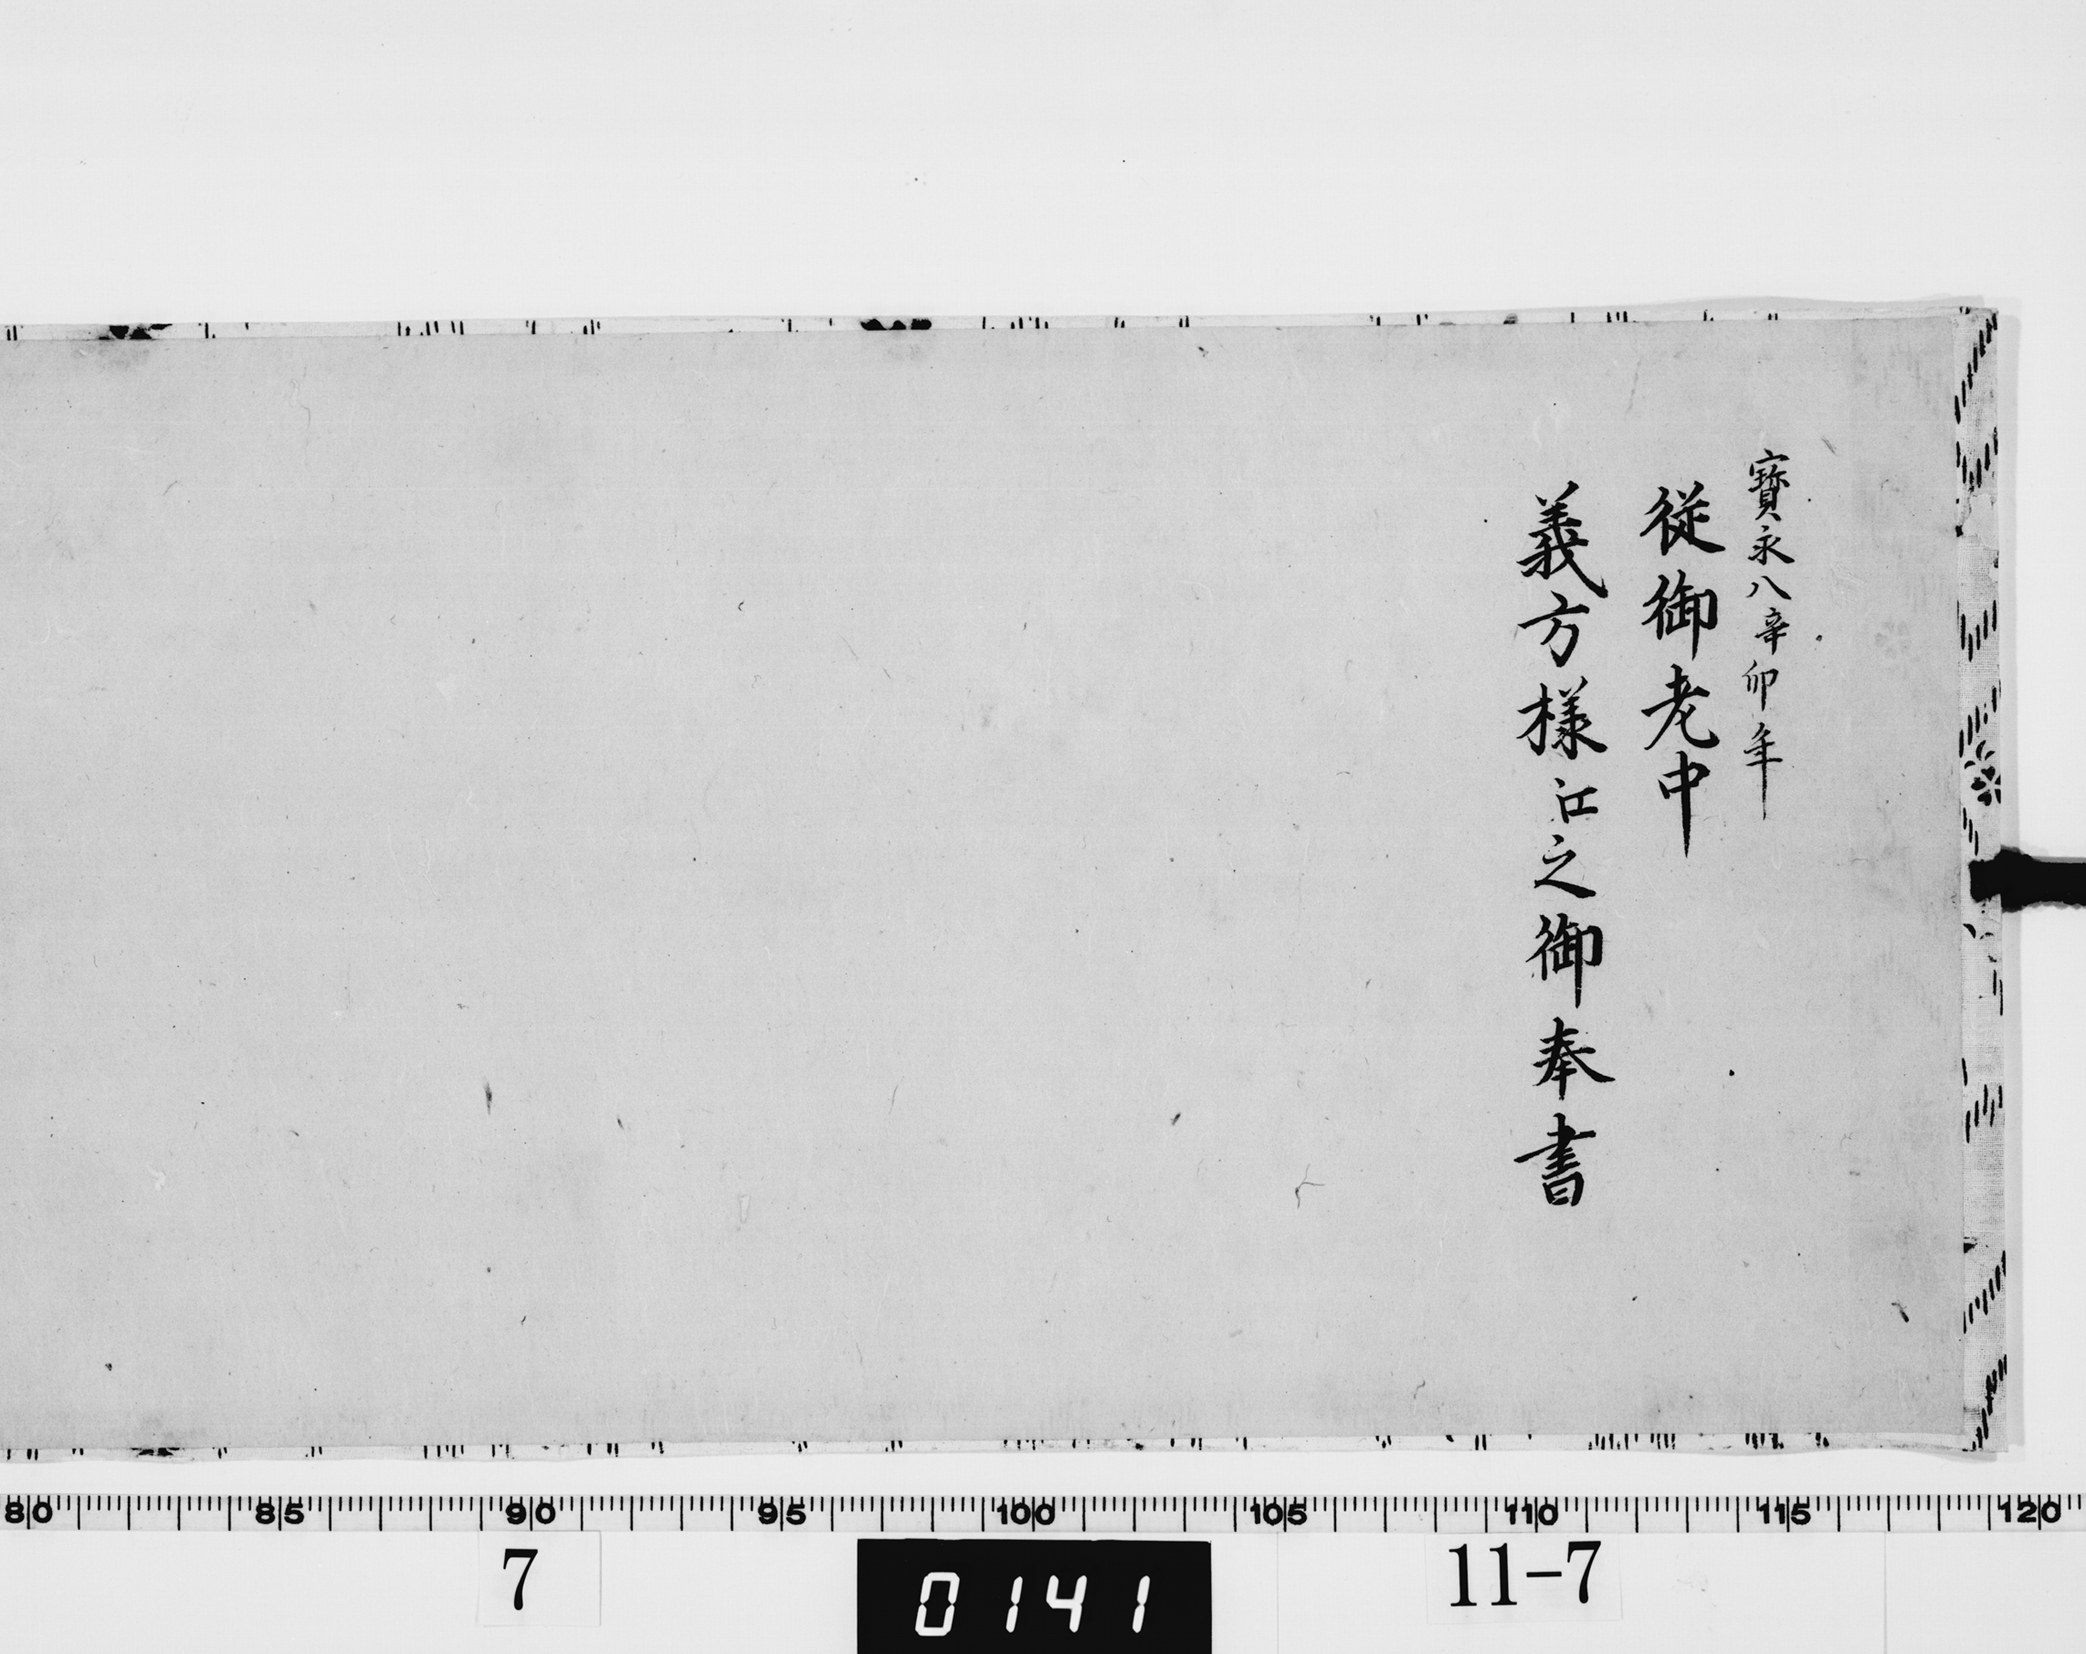 寳永八辛卯年
従御老中
義方様江之御奉書
80 85 90 95 100 105 110 115 120
7
0141
11-7